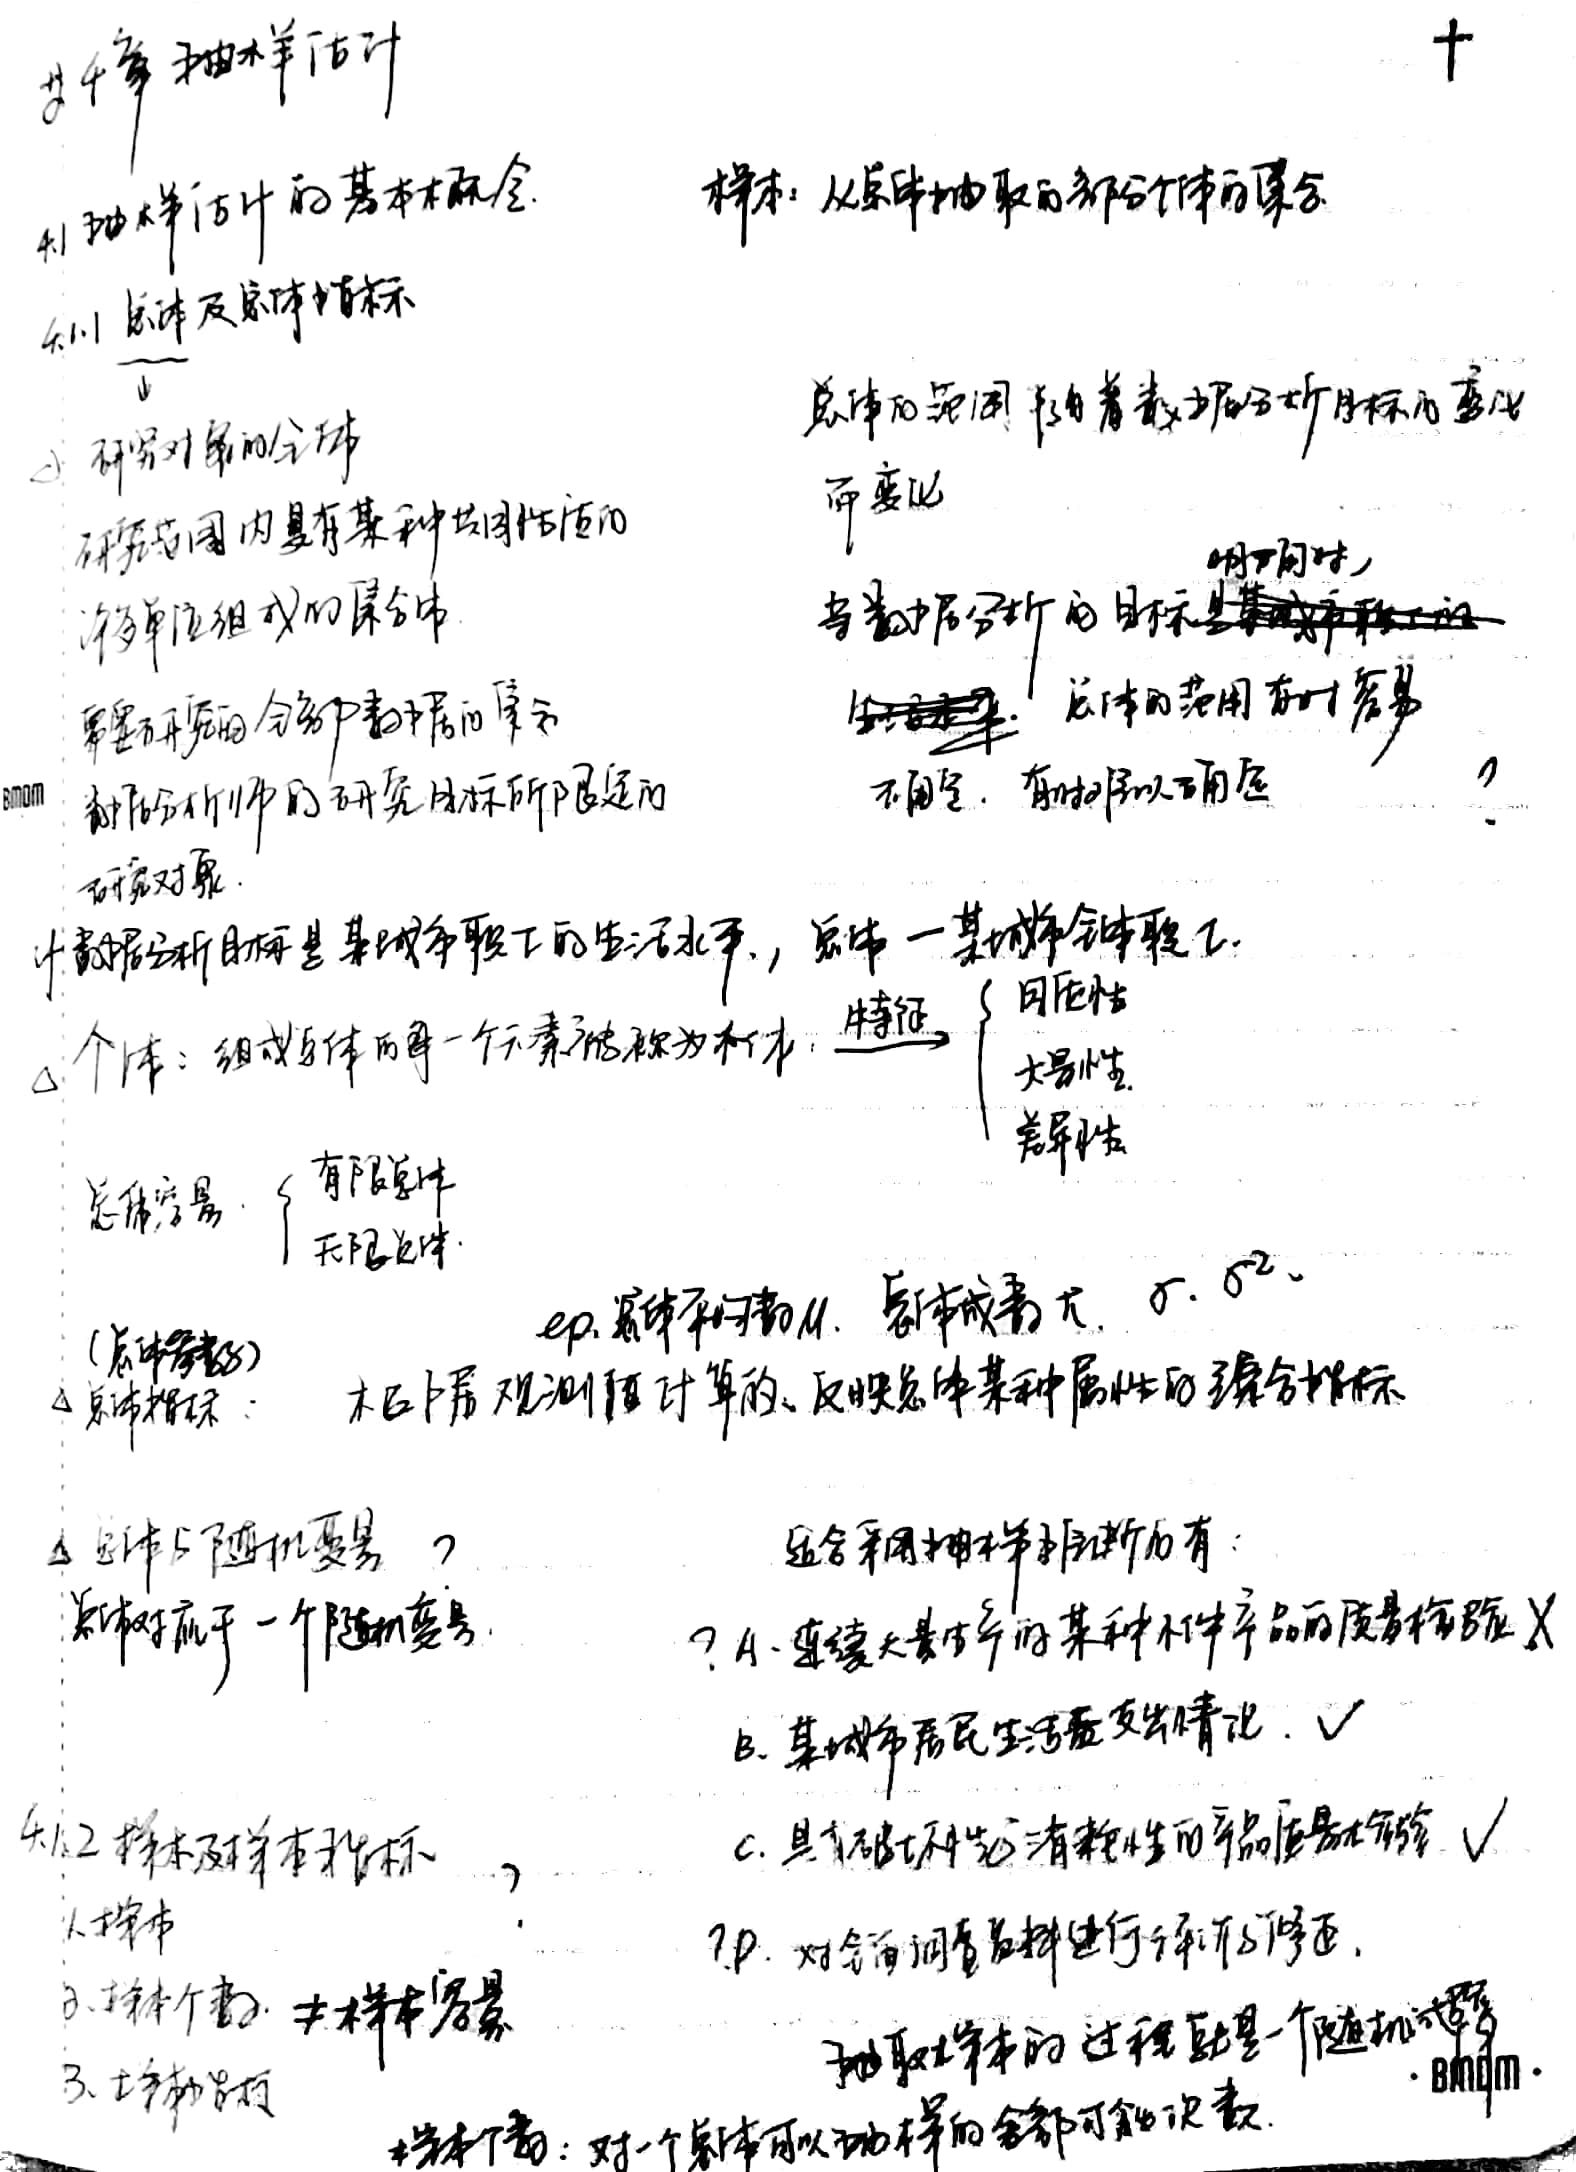 第4章 抽样估计
4.1 抽样估计的基本概念.
样本：从总体抽取的部分个体的集合.
4.1.1 总体及总体指标
↓
△ 研究对象的全体
研究范围内具有某种共同性质的
许多单位组成的集合体
需要研究的全部数据的集合
数据分析师的研究目标所限定的
研究对象.
总体的范围随着数据分析目标的变化
而变化
明确时，
当数据分析的目标
总体的范围有时容易
确定. 有时难以确定 ?
BMQM
数据分析目标是某城市职工的生活水平.，总体—某城市全体职工.
△ 个体：组成总体的每一个元素称为个体.
特征→ { 同质性
大量性.
差异性
总体容量. { 有限总体
无限总体.
ep. 总体平均数μ. 总体成数π. σ. σ²、
(总体参数)
△ 总体指标：根据观测值计算的、反映总体某种属性的综合指标
△ 总体与随机变量 ?
总体对应于一个随机变量.
适合采用抽样推断的有：
? A. 连续大量生产的某种小件产品的质量检验 X
B. 某城市居民生活费支出情况. ✓
C. 具有破坏性与消耗性的产品质量检验 ✓
? D. 对全面调查资料进行评价与修正.
4.1.2 样本及样本指标 ?
1. 样本
2. 样本个数. ≠样本容量
3. 样本指标
抽取样本的过程就是一个随机试验
·BMQM·
样本个数：对一个总体可以抽样的全部可能次数.